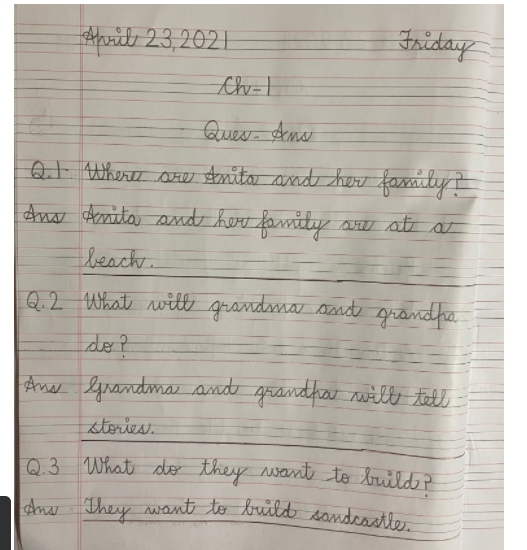 April 23, 2021 Friday
Ch-1
Ques- Ans
Q.1 Where are Anita and her family?
Ans Anita and her family are at a
beach.
Q.2 What will grandma and grandpa
do?
Ans Grandma and grandpa will tell
stories.
Q.3 What do they want to build?
Ans They want to build sandcastle.